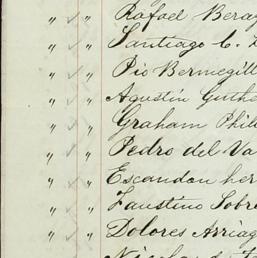 " ✓ " Rafael Bera
" ✓ " Santiago C.
" ✓ " Pio Bermegill
" ✓ " Agustin Guthe
" ✓ " Graham Phil
" ✓ " Pedro del Va
" ✓ " Escandon her
" ✓ " Faustino Sobr
" ✓ " Dolores Arriag